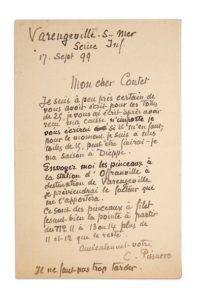 Varengeville-s-mer
Seine Inf.
17. Sept 99
Mon cher Contet
Je suis à peu près certain de
vous avoir écrit pour les toiles
de 25, vous ai écrit après avoir
reçu ma caisse n'importe je
vous écrirai si il m'en faut;
pour le moment je suis à mes
toiles de 15, peut être ferai-je
ma saison à Dieppe.
Envoyez moi les pinceaux à
la station d'Offranville à
destination de Varengeville
je préviendrai le facteur que
me l'apportera.
Ce sont des pinceaux à filet
faisant bien la pointe à partir
du nº 11 à 13 ou 14 plus de
11 et 12 que le reste.
Amicalement votre
C. Pissarro
Il ne faut pas trop tarder